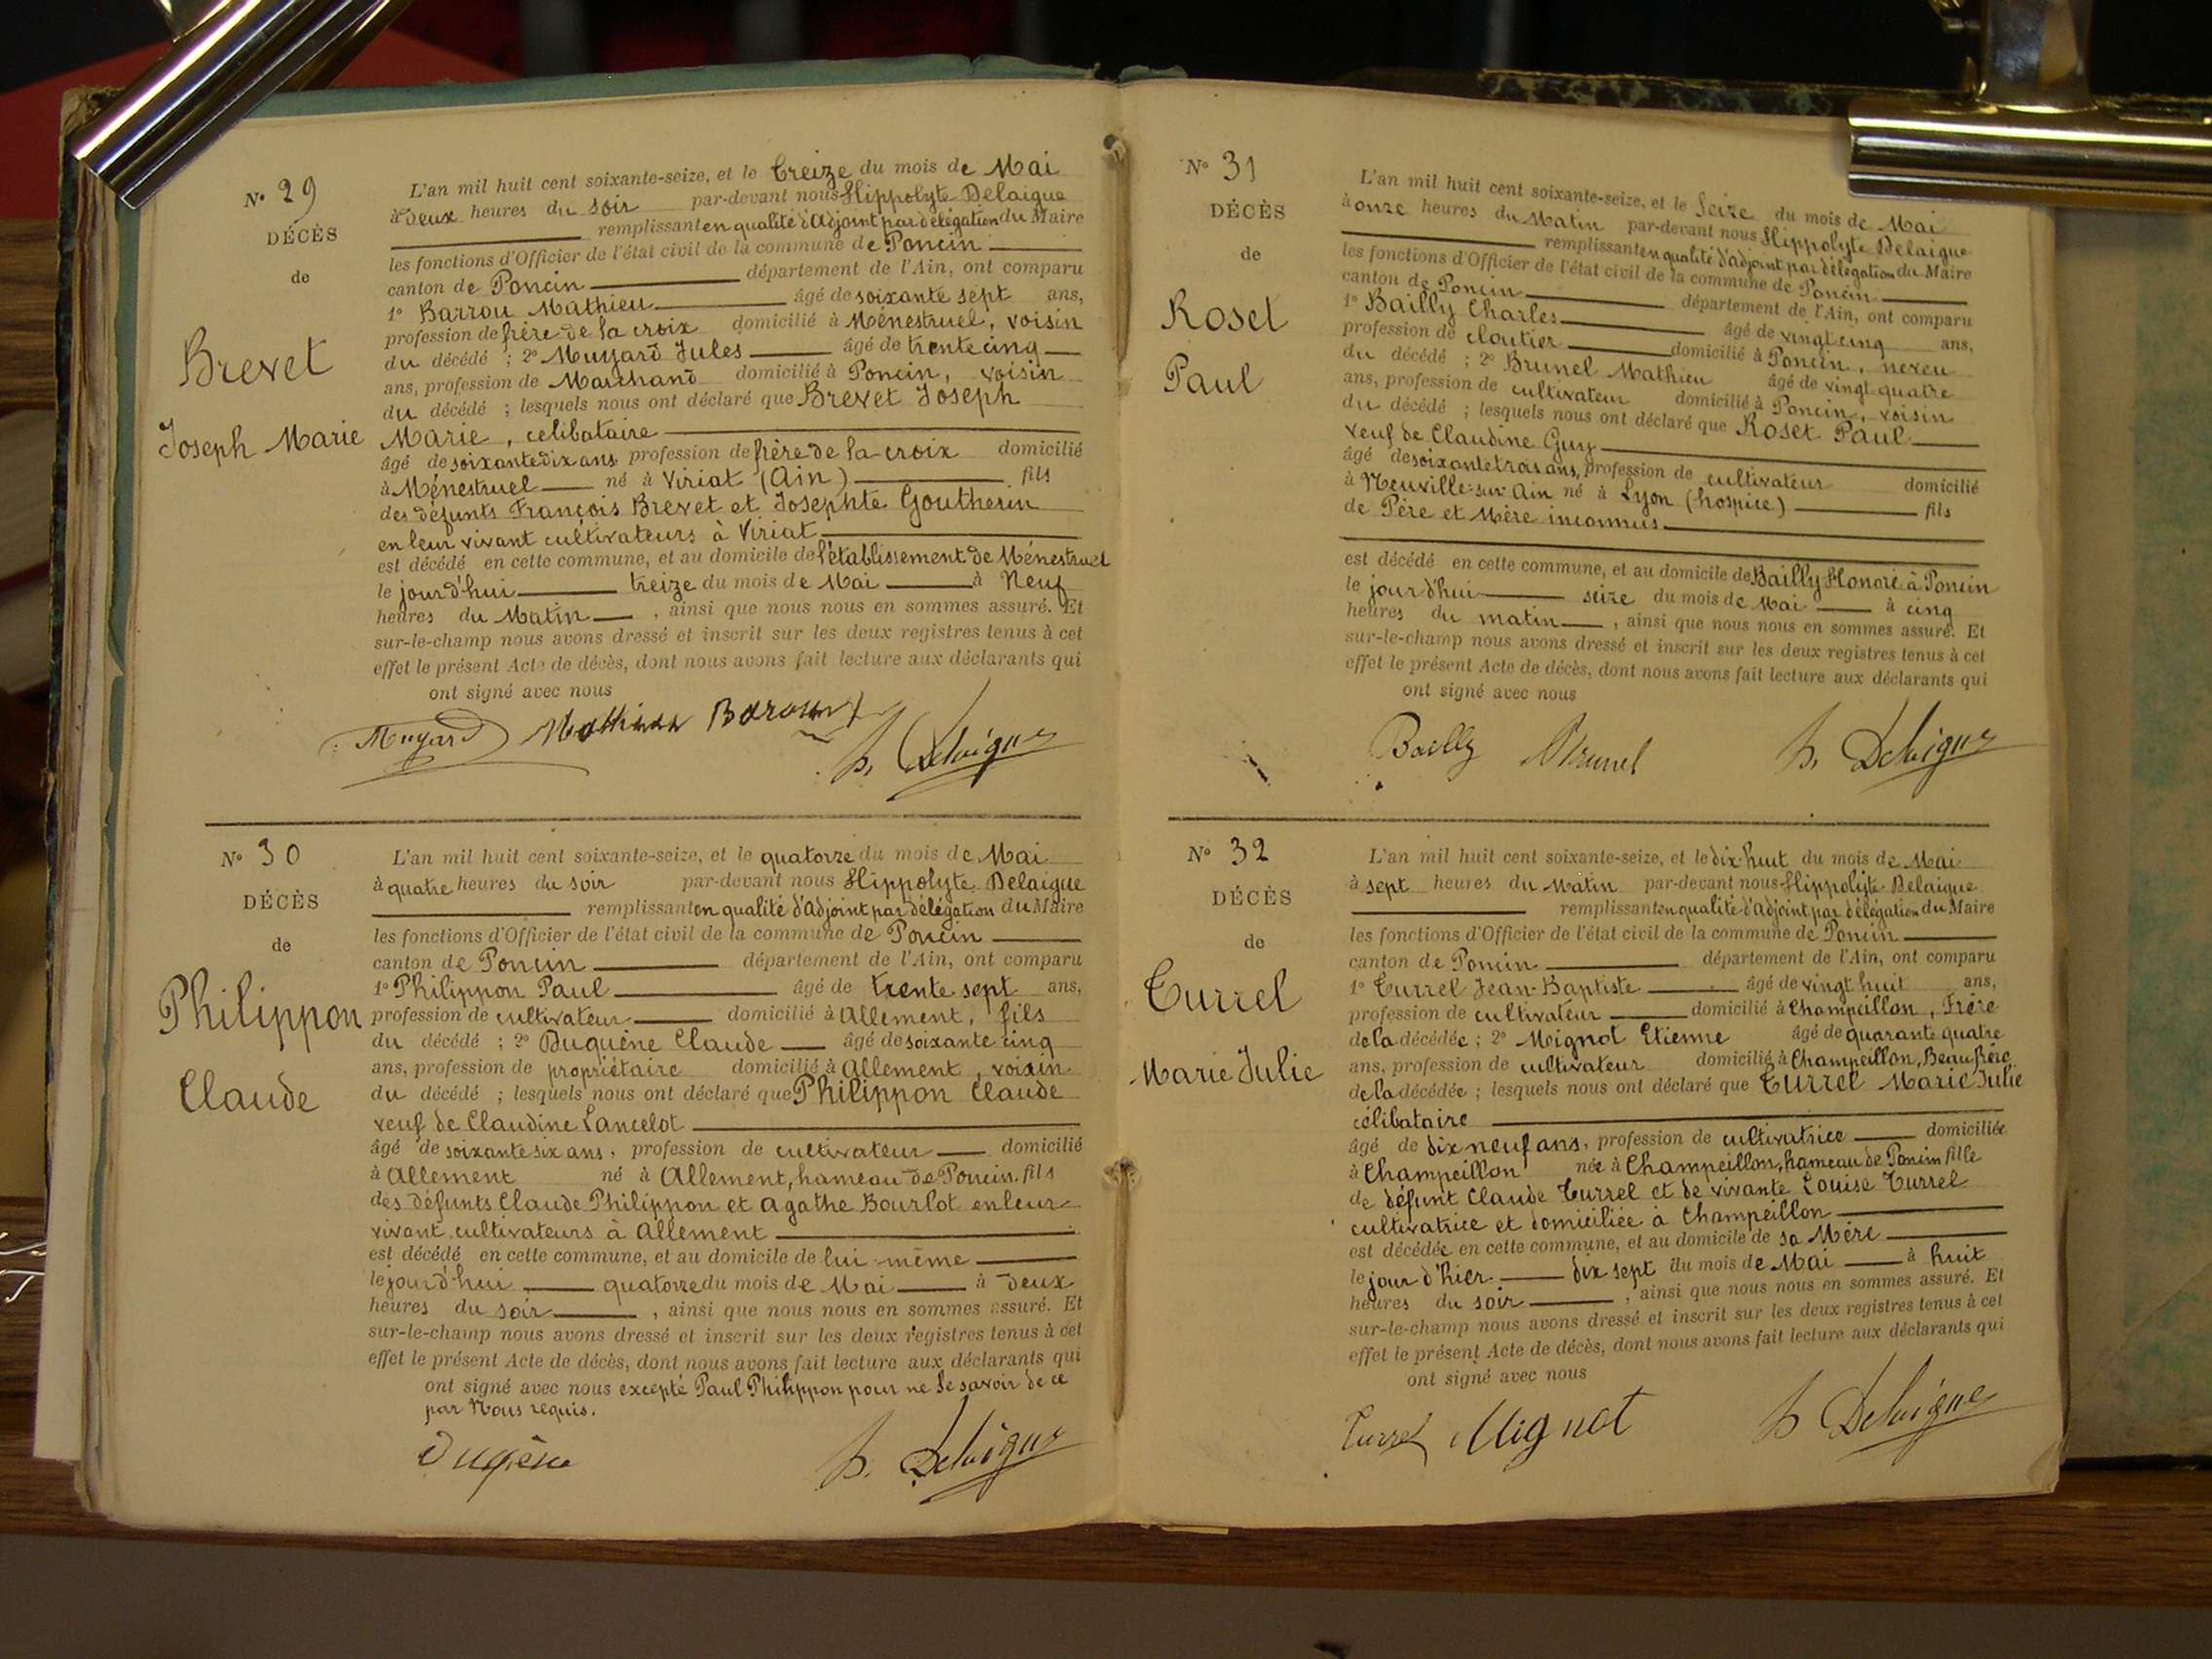 N° 29
DÉCÈS
de
Brevet
Joseph Marie
L'an mil huit cent soixante-seize, et le treize du mois de Mai
à deux heures du soir par-devant nous Hippolyte Delaigue
remplissant en qualité d'Adjoint par délégation du Maire
les fonctions d'Officier de l'état civil de la commune de Poncin
canton de Poncin département de l'Ain, ont comparu
1° Barrou Mathieu âgé de soixante sept ans,
profession de frère de la croix domicilié à Ménestruel, voisin
du décédé ; 2° Muyard Jules âgé de trente cinq
ans, profession de Marchand domicilié à Poncin, voisin
du décédé ; lesquels nous ont déclaré que Brevet Joseph
Marie, célibataire
âgé de soixante dix ans profession de frère de la croix domicilié
à Ménestruel né à Viriat (Ain) fils
des défunts François Brevet et Josephte Goutherin
en leur vivant cultivateurs à Viriat
est décédé en cette commune, et au domicile de l'établissement de Ménestruel
le jourd'hui treize du mois de Mai à Neuf
heures du Matin , ainsi que nous nous en sommes assuré. Et
sur-le-champ nous avons dressé et inscrit sur les deux registres tenus à cet
effet le présent Acte de décès, dont nous avons fait lecture aux déclarants qui
ont signé avec nous
Muyard Mathieu Barrou h. Delaigue
N° 30
DÉCÈS
de
Philippon
Claude
L'an mil huit cent soixante-seize, et le quatorze du mois de Mai
à quatre heures du soir par-devant nous Hippolyte Delaigue
remplissant en qualité d'Adjoint par délégation du Maire
les fonctions d'Officier de l'état civil de la commune de Poncin
canton de Poncin département de l'Ain, ont comparu
1° Philippon Paul âgé de trente sept ans,
profession de cultivateur domicilié à Allement, fils
du décédé ; 2° Duquène Claude âgé de soixante cinq
ans, profession de propriétaire domicilié à Allement, voisin
du décédé ; lesquels nous ont déclaré que Philippon Claude
veuf de Claudine Lancelot
âgé de soixante six ans, profession de cultivateur domicilié
à Allement né à Allement, hameau de Poncin. fils
des défunts Claude Philippon et Agathe Bourlot en leur
vivant cultivateurs à Allement
est décédé en cette commune, et au domicile de lui-même
le jourd'hui quatorze du mois de Mai à deux
heures du soir , ainsi que nous nous en sommes assuré. Et
sur-le-champ nous avons dressé et inscrit sur les deux registres tenus à cet
effet le présent Acte de décès, dont nous avons fait lecture aux déclarants qui
ont signé avec nous excepté Paul Philippon pour ne le savoir de ce
par Nous requis.
Duquène h. Delaigue
N° 31
DÉCÈS
de
Roset
Paul
L'an mil huit cent soixante-seize, et le Seize du mois de Mai
à onze heures du Matin par-devant nous Hippolyte Delaigue
remplissant en qualité d'adjoint par délégation du Maire
les fonctions d'Officier de l'état civil de la commune de Poncin
canton de Poncin département de l'Ain, ont comparu
1° Bailly Charles âgé de vingt cinq ans,
profession de cloutier domicilié à Poncin, neveu
du décédé ; 2° Brunel Mathieu âgé de vingt quatre
ans, profession de cultivateur domicilié à Poncin, voisin
du décédé ; lesquels nous ont déclaré que Roset Paul
veuf de Claudine Guy
âgé de soixante trois ans, profession de cultivateur domicilié
à Neuville-sur-Ain né à Lyon (hospice) fils
de Père et Mère inconnus
est décédé en cette commune, et au domicile de Bailly Honoré à Poncin
le jourd'hui seize du mois de Mai à cinq
heures du matin , ainsi que nous nous en sommes assuré. Et
sur-le-champ nous avons dressé et inscrit sur les deux registres tenus à cet
effet le présent Acte de décès, dont nous avons fait lecture aux déclarants qui
ont signé avec nous
Bailly Brunel h. Delaigue
N° 32
DÉCÈS
de
Turrel
Marie Julie
L'an mil huit cent soixante-seize, et le dix-huit du mois de Mai
à sept heures du Matin par-devant nous Hippolyte Delaigue
remplissant en qualité d'Adjoint par délégation du Maire
les fonctions d'Officier de l'état civil de la commune de Poncin
canton de Poncin département de l'Ain, ont comparu
1° Turrel Jean-Baptiste âgé de vingt huit ans,
profession de cultivateur domicilié à Champeillon, Frère
de la décédée ; 2° Mignot Etienne âgé de quarante quatre
ans, profession de cultivateur domicilié à Champeillon, Beau frère
de la décédée ; lesquels nous ont déclaré que Turrel Marie Julie
célibataire
âgé de dix neuf ans, profession de cultivatrice domiciliée
à Champeillon née à Champeillon, hameau de Poncin fille
de défunt Claude Turrel et de vivante Louise Turrel
cultivatrice et domiciliée à Champeillon
est décédée en cette commune, et au domicile de sa Mère
le jour d'hier dix sept du mois de Mai à huit
heures du soir , ainsi que nous nous en sommes assuré. Et
sur-le-champ nous avons dressé et inscrit sur les deux registres tenus à cet
effet le présent Acte de décès, dont nous avons fait lecture aux déclarants qui
ont signé avec nous
Turrel Mignot h Delaigue